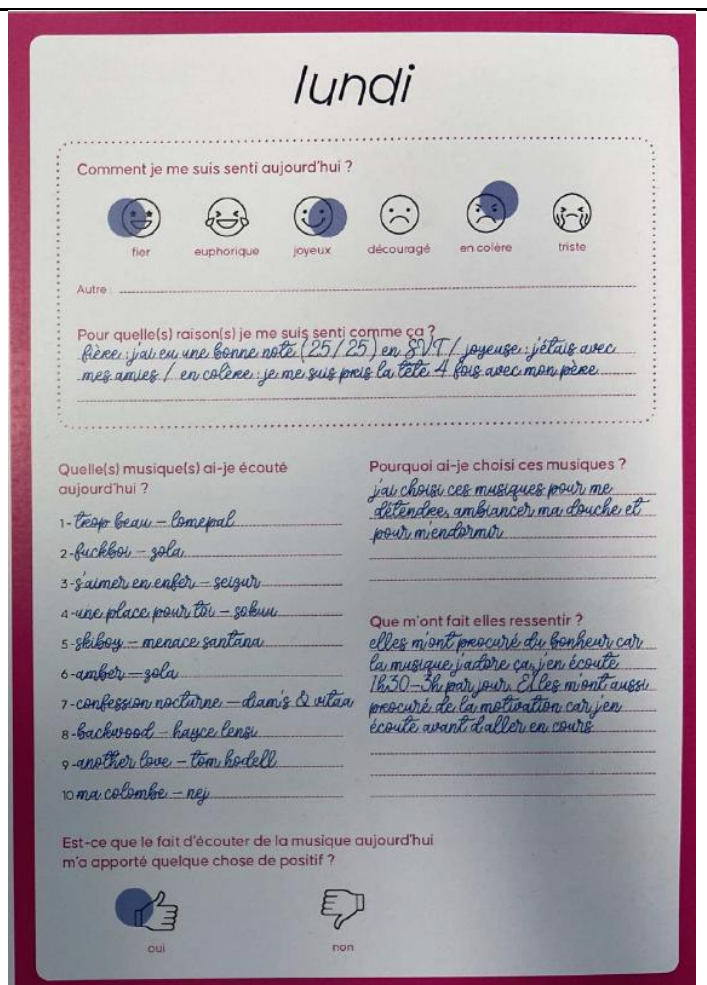 lundi
Comment je me suis senti aujourd'hui ?
fier euphorique joyeux découragé en colère triste
Autre :
Pour quelle(s) raison(s) je me suis senti comme ça ?
fière : j'ai eu une bonne note (25/25) en SVT / joyeuse : j'étais avec
mes amies / en colère : je me suis pris la tête 4 fois avec mon père
Quelle(s) musique(s) ai-je écouté
aujourd'hui ?
1- trop beau – lomepal
2- fuckboi – zola
3- s'aimer en enfer – seizur
4- une place pour toi – sokuu
5- skiboy – menace santana
6- amber – zola
7- confession nocturne – diam's & vitaa
8- backwood – hayce lensi
9- another love – tom hodell
10 ma colombe – nej
Pourquoi ai-je choisi ces musiques ?
j'ai choisi ces musiques pour me
détendre, ambiancer ma douche et
pour m'endormir
Que m'ont fait elles ressentir ?
elles m'ont procuré du bonheur car
la musique j'adore ça, j'en écoute
1h30–3h par jour. Elles m'ont aussi
procuré de la motivation car j'en
écoute avant d'aller en cours
Est-ce que le fait d'écouter de la musique aujourd'hui
m'a apporté quelque chose de positif ?
oui non